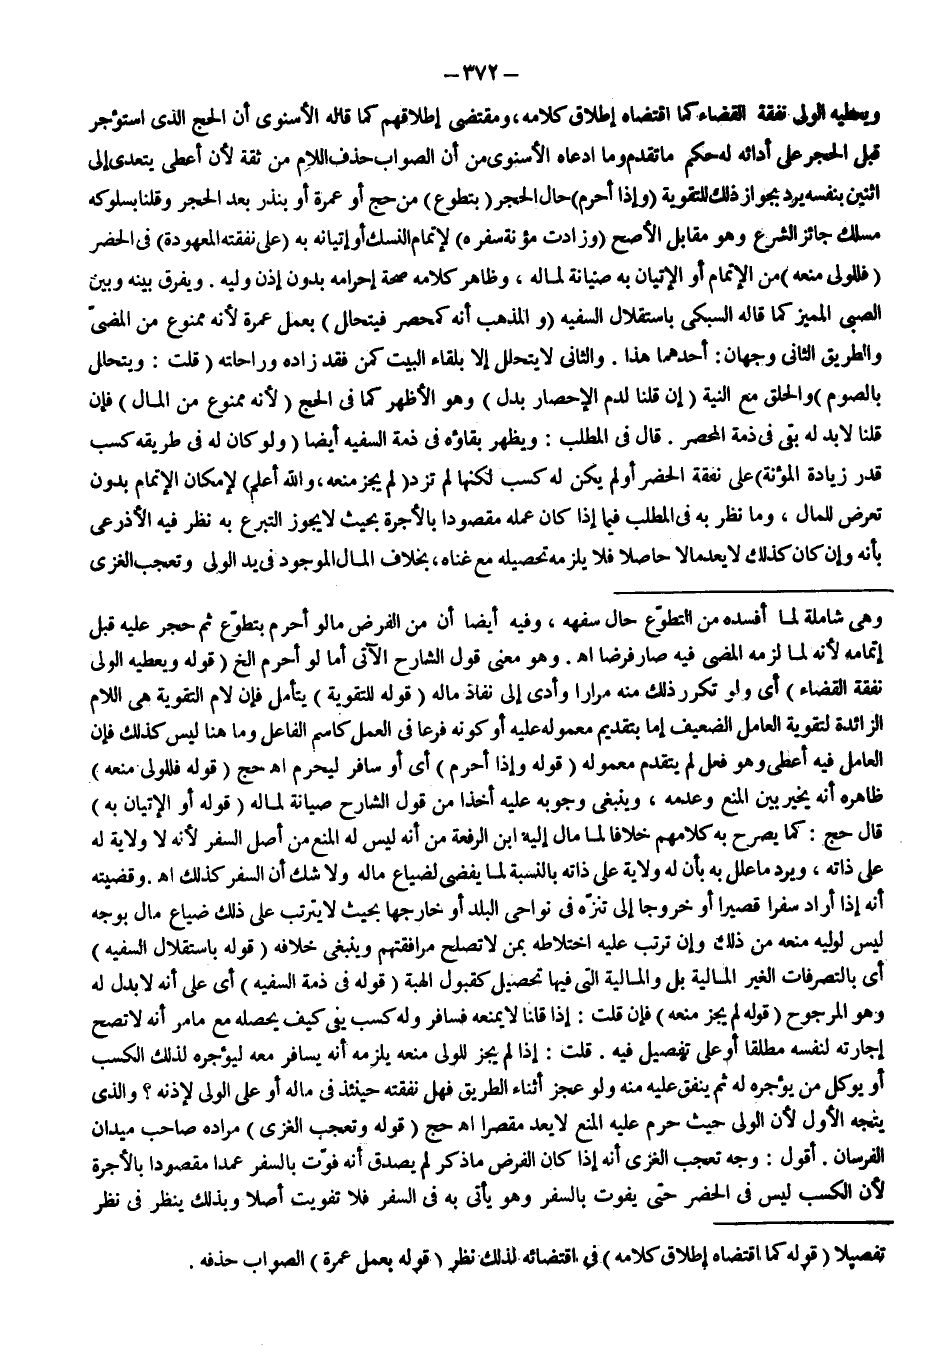 – ٣٧٢ –
ويعطيه الولى نفقة القضاء كما اقتضاه إطلاق كلامه، ومقتضى إطلاقهم كما قاله الأسنوى أن الحج الذى استؤجر
قبل الحجر على أدائه له حكم ماتقدم وما ادعاه الأسنوى من أن الصواب حذف اللام من ثقة لأن أعطى يتعدى إلى
اثنين بنفسه يرد بجواز ذلك للتقوية (وإذا أحرم) حال الحجر (بتطوع) من حج أو عمرة أو بنذر بعد الحجر وقلنا بسلوكه
مسلك جائز الشرع وهو مقابل الأصح (وزادت مؤنة سفره) لإتمام النسك أو إتيانه به (على نفقته المعهودة) فى الحضر
(فللولى منعه) من الإتمام أو الإتيان به صيانة لماله ، وظاهر كلامه صحة إحرامه بدون إذن وليه . ويفرق بينه وبين
الصبى المميز كما قاله السبكى باستقلال السفيه (و المذهب أنه كمحصر فيتحلل) بعمل عمرة لأنه ممنوع من المضىّ
والطريق الثانى وجهان: أحدهما هذا . والثانى لايتحلل إلا بلقاء البيت كمن فقد زاده وراحلته ( قلت : ويتحلل
بالصوم) والحلق مع النية ( إن قلنا لدم الإحصار بدل ) وهو الأظهر كما فى الحج ( لأنه ممنوع من المال ) فإن
قلنا لابد له بقى فى ذمة المحصر . قال فى المطلب : ويظهر بقاؤه فى ذمة السفيه أيضا ( ولو كان له فى طريقه كسب
قدر زيادة المؤنة) على نفقة الحضر أو لم يكن له كسب لكنها لم تزد( لم يجز منعه، والله أعلم) لإمكان الإتمام بدون
تعرض للمال ، وما نظر به فى المطلب فيما إذا كان عمله مقصودا بالأجرة بحيث لايجوز التبرع به نظر فيه الأذرعى
بأنه وإن كان كذلك لا يعد مالا حاصلا فلا يلزمه تحصيله مع غناه، بخلاف المال الموجود فى يد الولى وتعجب الغزى
وهى شاملة لما أفسده من التطوّع حال سفهه ، وفيه أيضا أن من الفرض مالو أحرم بتطوّع ثم حجر عليه قبل
إتمامه لأنه لما لزمه المضى فيه صار فرضا اه . وهو معنى قول الشارح الآتى أما لو أحرم الخ ( قوله ويعطيه الولى
نفقة القضاء ) أى ولو تكرر ذلك منه مرارا وأدى إلى نفاذ ماله ( قوله للتقوية ) يتأمل فإن لام التقوية هى اللام
الزائدة لتقوية العامل الضعيف إما بتقديم معموله عليه أو كونه فرعا فى العمل كاسم الفاعل وما هنا ليس كذلك فإن
العامل فيه أعطى وهو فعل لم يتقدم معموله ( قوله وإذا أحرم ) أى أو سافر ليحرم اه حج ( قوله فللولى منعه )
ظاهره أنه يخير بين المنع وعدمه ، وينبغى وجوبه عليه أخذا من قول الشارح صيانة لماله ( قوله أو الإتيان به )
قال حج : كما يصرح به كلامهم خلافا لما مال إليه ابن الرفعة من أنه ليس له المنع من أصل السفر لأنه لا ولاية له
على ذاته ، ويرد ما علل به بأن له ولاية على ذاته بالنسبة لما يفضى لضياع ماله ولا شك أن السفر كذلك اه . وقضيته
أنه إذا أراد سفرا قصيرا أو خروجا إلى تنزّه فى نواحى البلد أو خارجها بحيث لايترتب على ذلك ضياع مال بوجه
ليس لوليه منعه من ذلك وإن ترتب عليه اختلاطه بمن لاتصلح مرافقتهم وينبغى خلافه ( قوله باستقلال السفيه )
أى بالتصرفات الغير المالية بل والمالية التى فيها تحصيل كقبول الهبة ( قوله فى ذمة السفيه ) أى على أنه لابدل له
وهو المرجوح ( قوله لم يجز منعه ) فإن قلت : إذا قلنا لايمنعه فسافر وله كسب يفى كيف يحصله مع مامر أنه لاتصح
إجارته لنفسه مطلقا أو على تفصيل فيه . قلت : إذا لم يجز للولى منعه يلزمه أنه يسافر معه ليؤجره لذلك الكسب
أو يوكل من يؤجره له ثم ينفق عليه منه ولو عجز أثناء الطريق فهل نفقته حينئذ فى ماله أو على الولى لإذنه ؟ والذى
يتجه الأول لأن الولى حيث حرم عليه المنع لايعد مقصرا اه حج ( قوله وتعجب الغزى ) مراده صاحب ميدان
الفرسان . أقول : وجه تعجب الغزى أنه إذا كان الفرض ماذكر لم يصدق أنه فوّت بالسفر عمدا مقصودا بالأجرة
لأن الكسب ليس فى الحضر حتى يفوت بالسفر وهو يأتى به فى السفر فلا تفويت أصلا وبذلك ينظر فى نظر
تفصيلا ( قوله كما اقتضاه إطلاق كلامه ) فى اقتضائه لذلك نظر ( قوله بعمل عمرة ) الصواب حذفه .